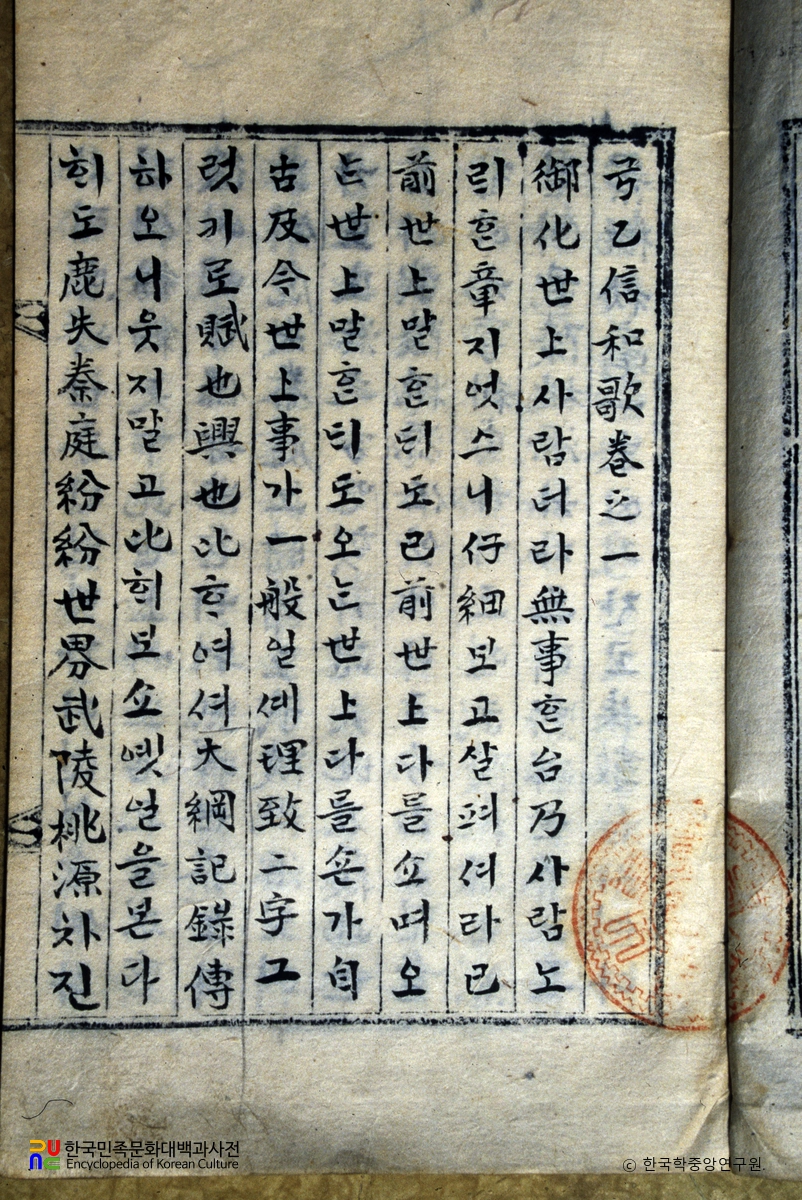 弓乙信和歌卷之一
御化世上사람더라無事ᄒᆞᆫ台乃사람노
ᄅᆡᄒᆞᆫ章지엿스니仔細보고살펴셔라已
前世上말ᄒᆞᆫᄃᆡ도已前世上다를쇼며오
ᄂᆞᆫ世上말ᄒᆞᆫᄃᆡ도오ᄂᆞᆫ世上다를손가自
古及今世上事가一般일셰理致二字그
럿기로賦也興也比ᄒᆞ여셔大綱記錄傳
하오니웃지말고比ᄒᆡ보쇼옛일을본다
ᄒᆡ도鹿失秦庭紛紛世界武陵桃源차진
한국민족문화대백과사전
Encyclopedia of Korean Culture
© 한국학중앙연구원